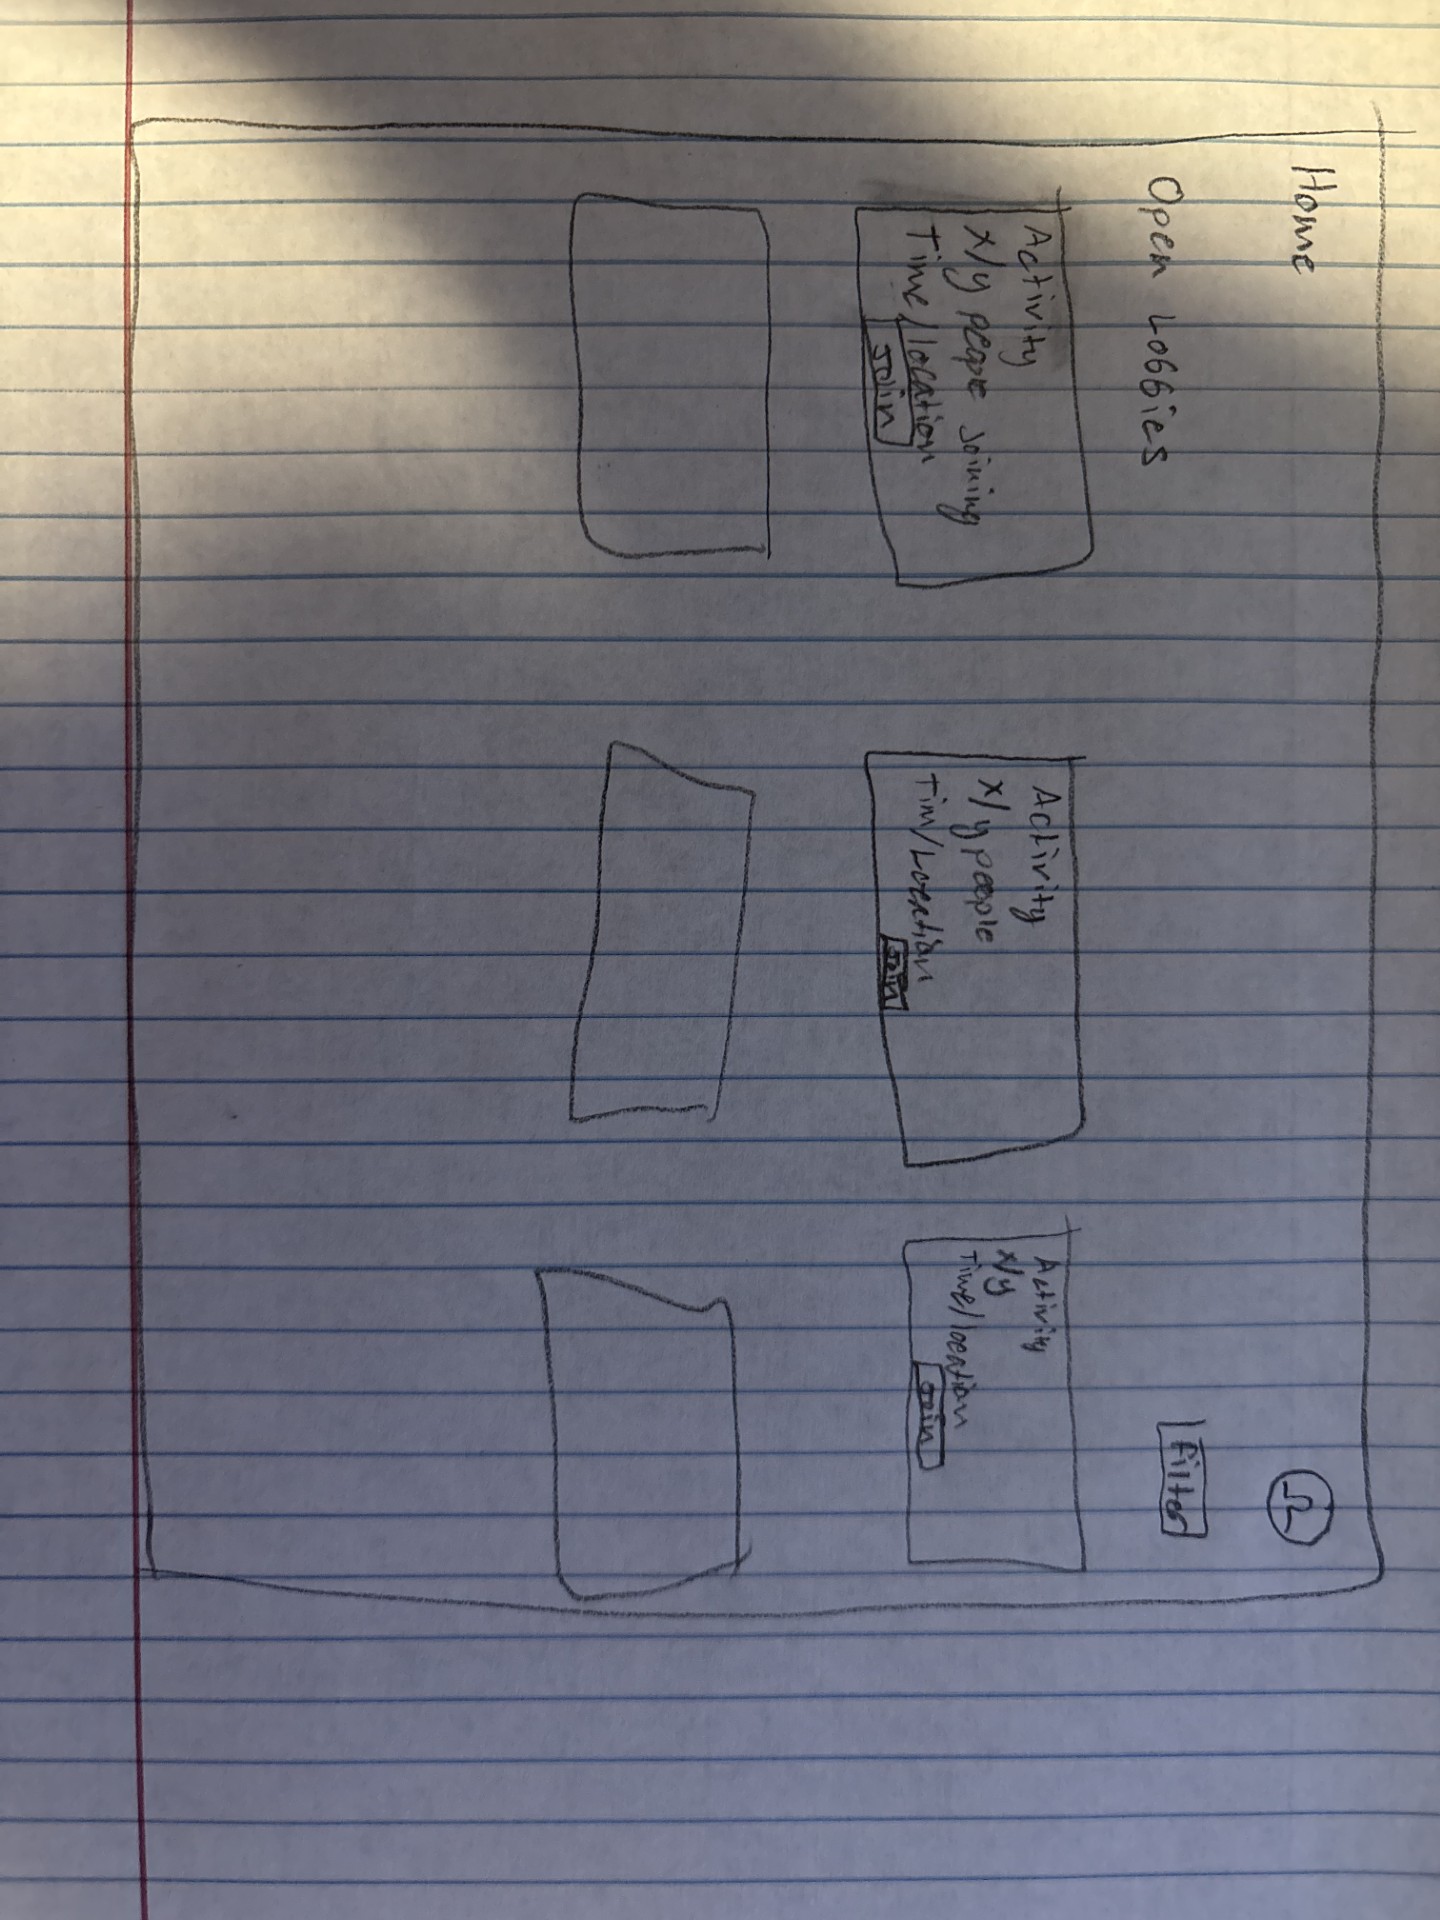 Home
Open Lobbies
Filter
Activity
x/y people joining
Time/location
Join
Activity
x/y people
Tim/Location
Join
Activity
x/y
Time/location
Join